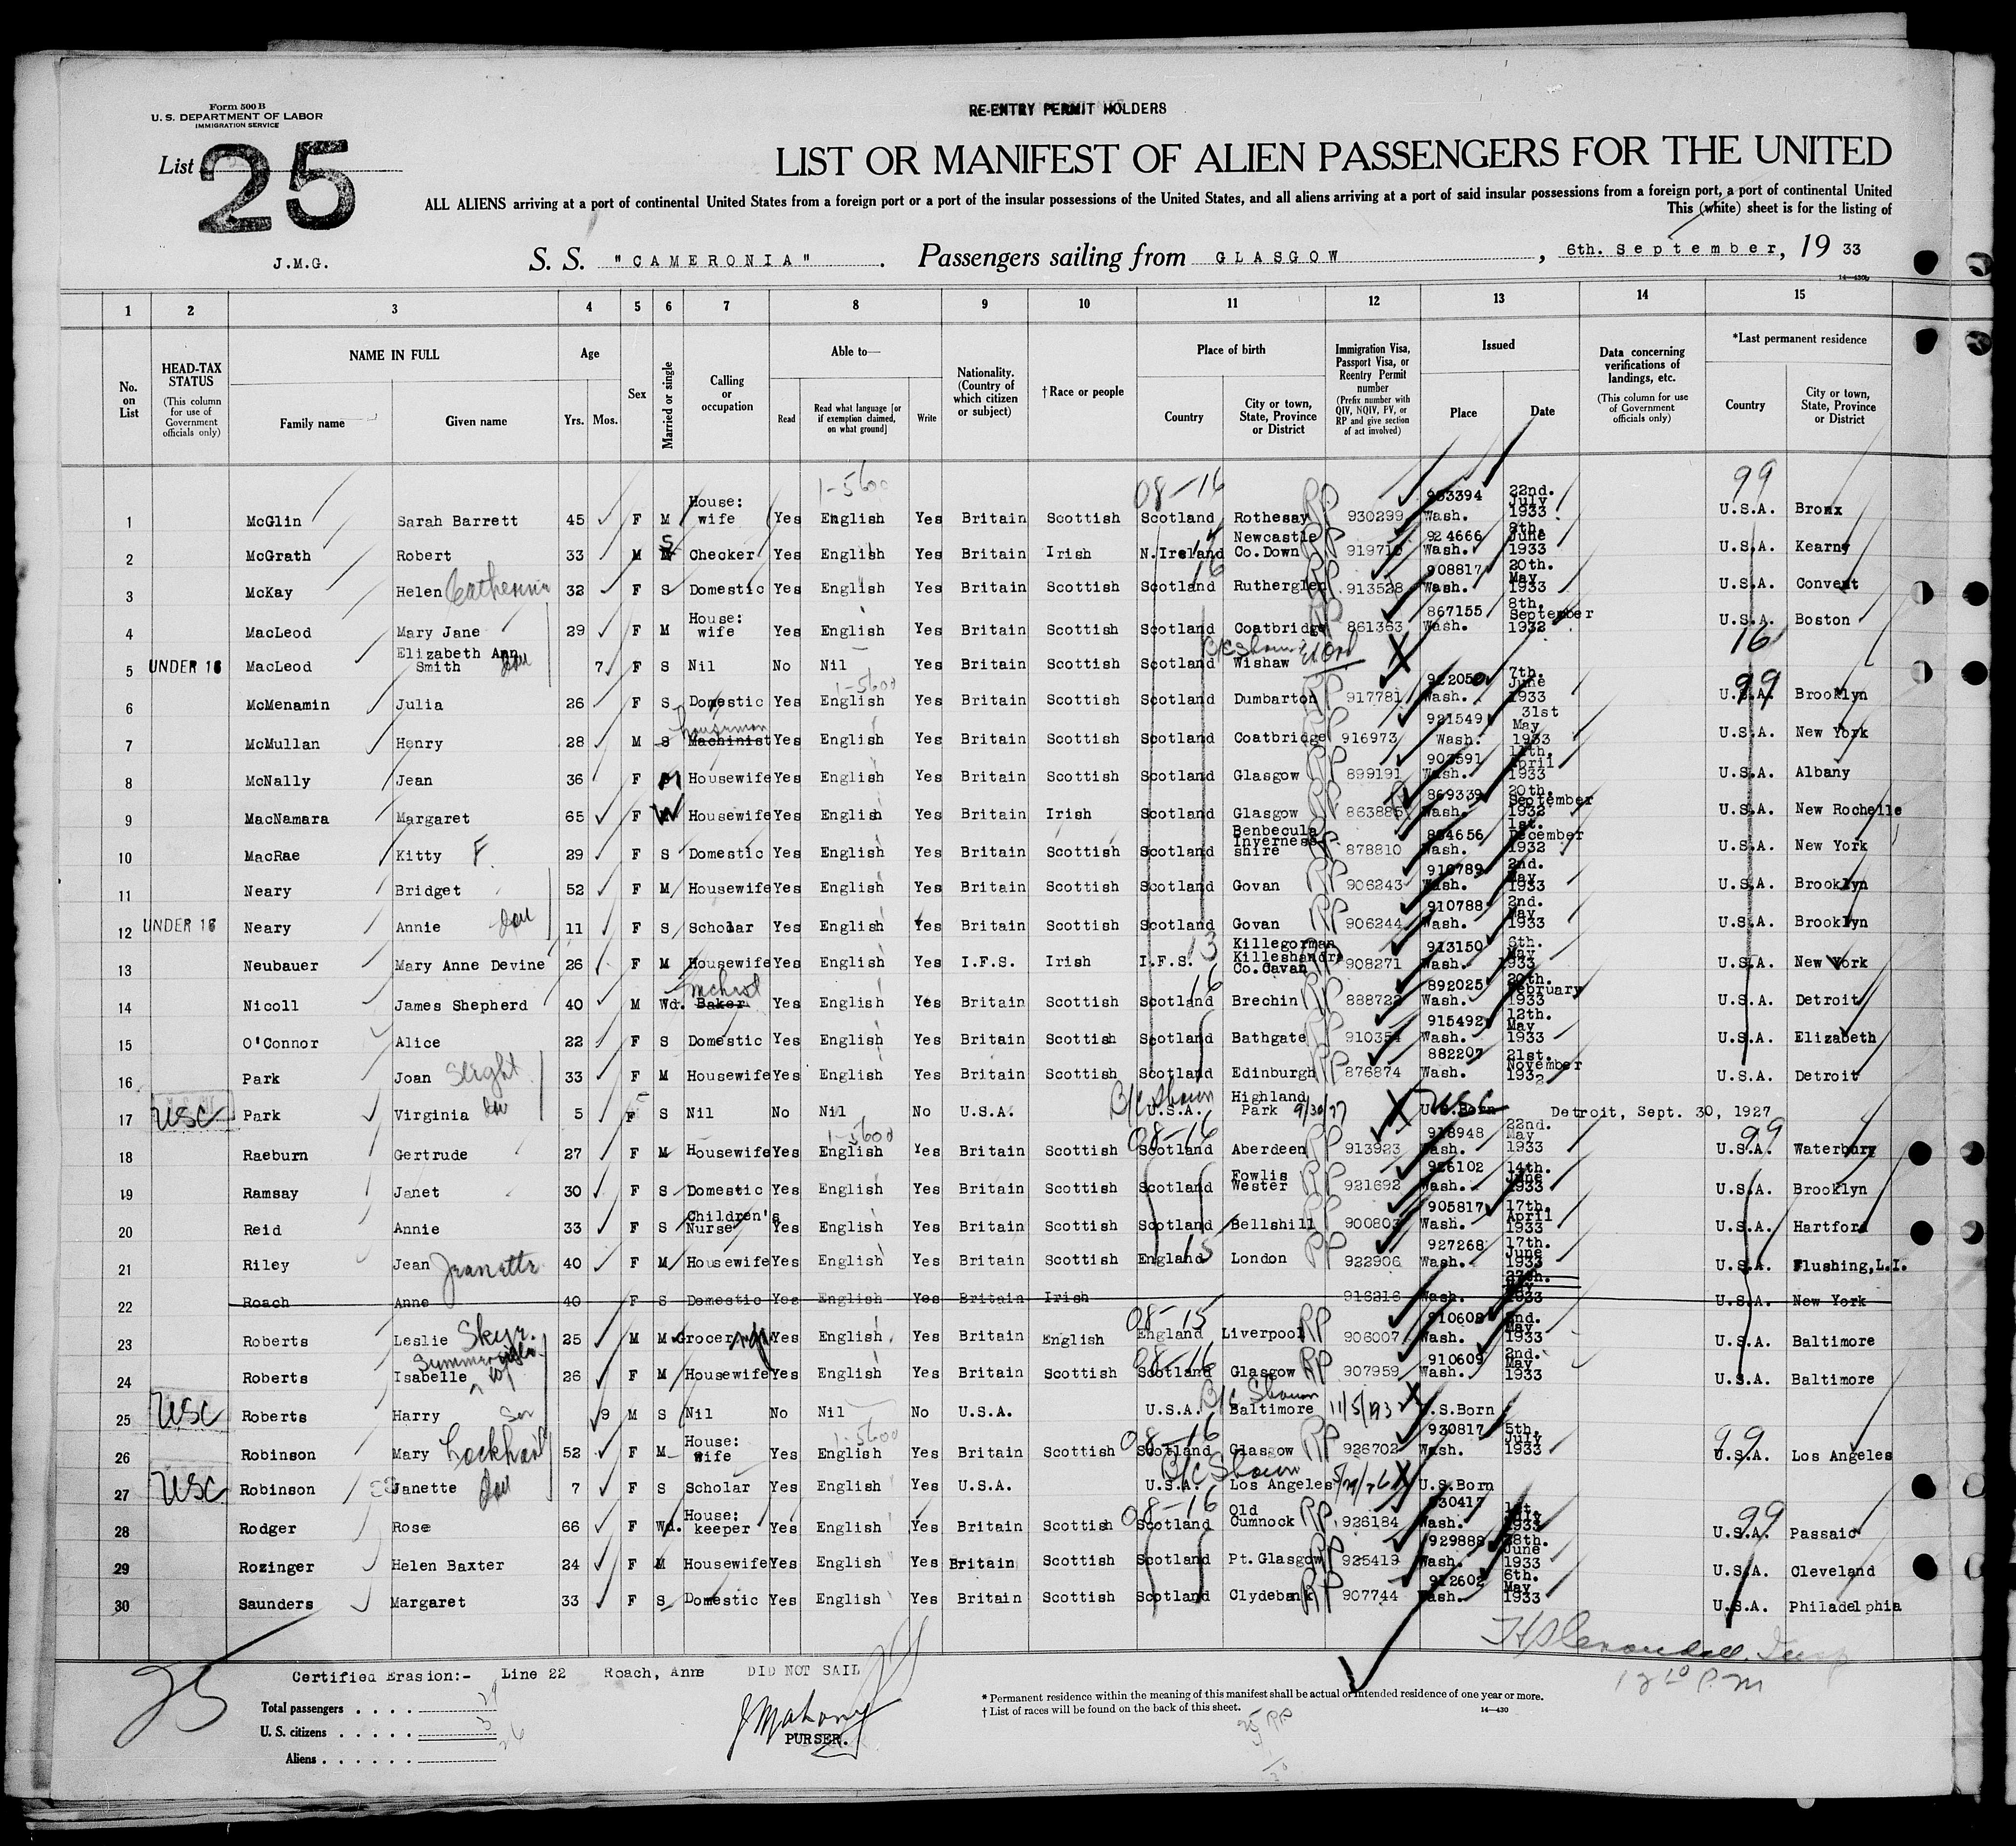 Form 500 B
U. S. DEPARTMENT OF LABOR
IMMIGRATION SERVICE
RE-ENTRY PERMIT HOLDERS
List 25
LIST OR MANIFEST OF ALIEN PASSENGERS FOR THE UNITED
ALL ALIENS arriving at a port of continental United States from a foreign port or a port of the insular possessions of the United States, and all aliens arriving at a port of said insular possessions from a foreign port, a port of continental United
This (white) sheet is for the listing of
J.M.G.
S. S. "CAMERONIA". Passengers sailing from GLASGOW, 6th. September, 19 33
14—430b
1 2 3 4 5 6 7 8 9 10 11 12 13 14 15
No. on List
HEAD-TAX STATUS (This column for use of Government officials only)
NAME IN FULL Family name Given name
Age Yrs. Mos.
Sex
Married or single
Calling or occupation
Able to— Read Read what language [or if exemption claimed, on what ground] Write
Nationality. (Country of which citizen or subject)
†Race or people
Place of birth Country City or town, State, Province or District
Immigration Visa, Passport Visa, or Reentry Permit number (Prefix number with QIV, NQIV, PV, or RP and give section of act involved)
Issued Place Date
Data concerning verifications of landings, etc. (This column for use of Government officials only)
*Last permanent residence Country City or town, State, Province or District
1-5600 08-16 99
1 McGlin Sarah Barrett 45 F M House: wife Yes English Yes Britain Scottish Scotland Rothesay RP 930299 Wash. 22nd. July 1933 U.S.A. Bronx
2 McGrath Robert 33 M S Checker Yes English Yes Britain Irish N.Ireland Newcastle Co.Down RP 919710 924666 Wash. 8th. June 1933 U.S.A. Kearny
3 McKay Helen Catherine 32 F S Domestic Yes English Yes Britain Scottish Scotland Rutherglen RP 913528 908817 Wash. 20th. May 1933 U.S.A. Convent
4 MacLeod Mary Jane 29 F M House: wife Yes English Yes Britain Scottish Scotland Coatbridge RP 861363 867155 Wash. 8th. September 1932 U.S.A. Boston
5 UNDER 16 MacLeod Elizabeth Ann Smith dau 7 F S Nil No Nil Yes Britain Scottish Scotland Wishaw B/C Shown X 16
6 McMenamin Julia 26 F S Domestic Yes English 1-5600 Yes Britain Scottish Scotland Dumbarton RP 917781 Wash. 7th. June 1933 99 U.S.A. Brooklyn
7 McMullan Henry 28 M S Machinist houseman Yes English Yes Britain Scottish Scotland Coatbridge RP 916973 921549 Wash. 31st May 1933 U.S.A. New York
8 McNally Jean 36 F M Housewife Yes English Yes Britain Scottish Scotland Glasgow RP 899191 Wash. 11th. April 1933 U.S.A. Albany
9 MacNamara Margaret 65 F W Housewife Yes English Yes Britain Irish Scotland Glasgow RP 863885 869339 Wash. 20th. September 1932 U.S.A. New Rochelle
10 MacRae Kitty F. 29 F S Domestic Yes English Yes Britain Scottish Scotland Benbecula Inverness-shire RP 878810 884656 Wash. 1st. December 1932 U.S.A. New York
11 Neary Bridget 52 F M Housewife Yes English Yes Britain Scottish Scotland Govan RP 906243 910789 Wash. 2nd. May 1933 U.S.A. Brooklyn
12 UNDER 16 Neary Annie dau 11 F S Scholar Yes English Yes Britain Scottish Scotland Govan RP 906244 910788 Wash. 2nd. May 1933 U.S.A. Brooklyn
13 Neubauer Mary Anne Devine 26 F M Housewife Yes English Yes I.F.S. Irish I.F.S. 13 Killegorman Killeshandra Co.Cavan RP 908271 913150 Wash. May 1933 U.S.A. New York
14 Nicoll James Shepherd 40 M Wd. Baker Yes English Yes Britain Scottish Scotland 16 Brechin RP 888722 892025 Wash. February 1933 U.S.A. Detroit
15 O'Connor Alice 22 F S Domestic Yes English Yes Britain Scottish Scotland Bathgate RP 910354 915492 Wash. 12th. May 1933 U.S.A. Elizabeth
16 Park Joan Slight 33 F M Housewife Yes English Yes Britain Scottish Scotland Edinburgh RP 876874 882207 Wash. 21st. November 1932 U.S.A. Detroit
17 USC Park Virginia dau 5 F S Nil No Nil No U.S.A. B/C Shown U.S.A. Highland Park 9/30/27 X USC U.S.Born Detroit, Sept. 30, 1927
18 Raeburn Gertrude 27 F M Housewife Yes English 1-5600 Yes Britain Scottish 08-16 Scotland Aberdeen RP 913923 918948 Wash. 22nd. May 1933 99 U.S.A. Waterbury
19 Ramsay Janet 30 F S Domestic Yes English Yes Britain Scottish Scotland Fowlis Wester RP 921692 926102 Wash. 14th. June 1933 U.S.A. Brooklyn
20 Reid Annie 33 F S Children's Nurse Yes English Yes Britain Scottish Scotland Bellshill RP 900803 905817 Wash. 17th. April 1933 U.S.A. Hartford
21 Riley Jean Jeanette 40 F M Housewife Yes English Yes Britain Scottish England 15 London RP 922906 927268 Wash. 17th. June 1933 U.S.A. Flushing,L.I.
22 Roach Anne 40 F S Domestic Yes English Yes Britain Irish 916316 Wash. 27th. May 1933 U.S.A. New York
23 Roberts Leslie Skyr. 25 M M Grocer Yes English Yes Britain English 08-15 England Liverpool RP 906007 910608 Wash. 2nd. May 1933 U.S.A. Baltimore
24 Roberts Isabelle wf 26 F M Housewife Yes English Yes Britain Scottish 08-16 Scotland Glasgow RP 907959 910609 Wash. 2nd. May 1933 U.S.A. Baltimore
25 USC Roberts Harry Son 9 M S Nil No Nil No U.S.A. U.S.A. B/C Shown Baltimore X U.S.Born
26 Robinson Mary Lockhart 52 F M House: wife Yes English 1-5600 Yes Britain Scottish 08-16 Scotland Glasgow RP 926702 930817 Wash. 5th. July 1933 99 U.S.A. Los Angeles
27 USC Robinson Janette dau 7 F S Scholar Yes English Yes U.S.A. B/C Shown U.S.A. Los Angeles X U.S.Born
28 Rodger Rose 66 F Wd. House: keeper Yes English Yes Britain Scottish 08-16 Scotland Old Cumnock RP 926184 930417 Wash. 1st. July 1933 99 U.S.A. Passaic
29 Rozinger Helen Baxter 24 F M Housewife Yes English Yes Britain Scottish Scotland Pt.Glasgow RP 925419 929888 Wash. 28th. June 1933 U.S.A. Cleveland
30 Saunders Margaret 33 F S Domestic Yes English Yes Britain Scottish Scotland Clydebank RP 907744 912602 Wash. 6th. May 1933 U.S.A. Philadelphia
25 Certified Erasion:- Line 22 Roach, Anne DID NOT SAIL
Total passengers 29
U. S. citizens 3
Aliens 26
J Mahony
PURSER.
* Permanent residence within the meaning of this manifest shall be actual or intended residence of one year or more.
† List of races will be found on the back of this sheet.
14—430
25 RP
12 10 P M